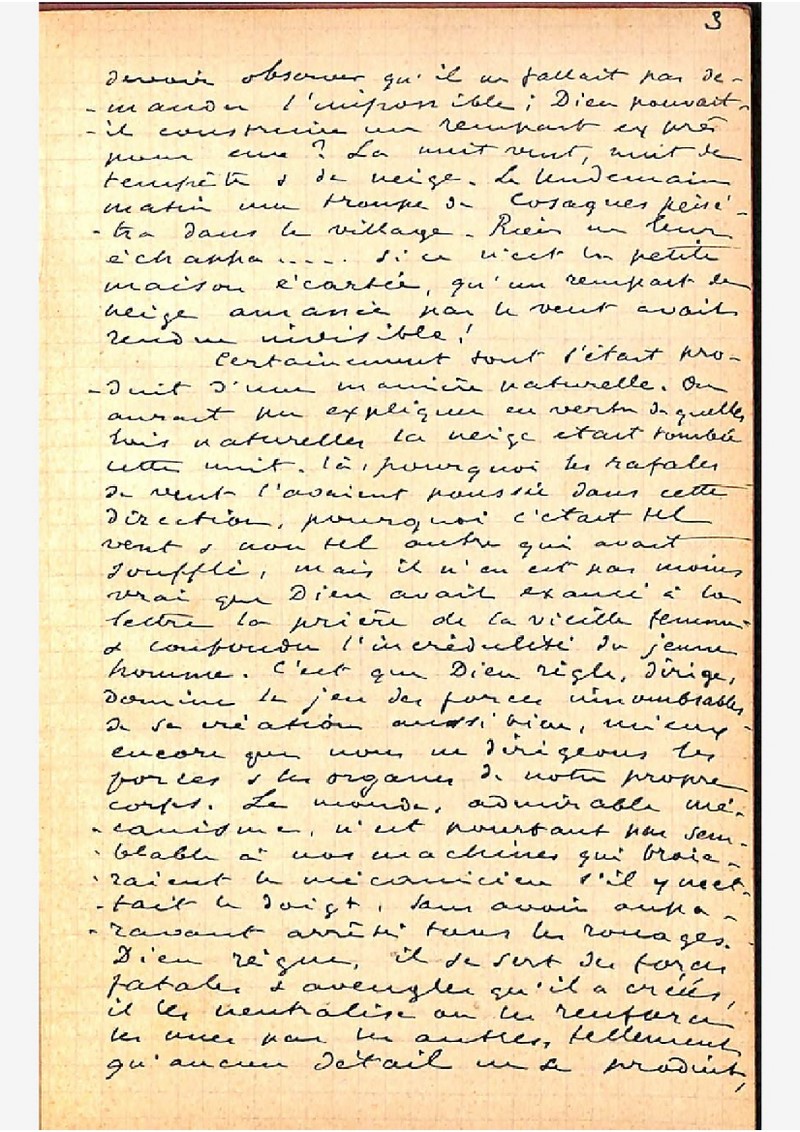 3
devoir observer qu'il ne fallait pas de-
-mander l'impossible ; Dieu pouvait-
-il construire un rempart exprès
pour eux ? La nuit vint, nuit de
tempête & de neige. Le lendemain
matin une troupe de Cosaques péné-
-tra dans le village. Rien ne leur
échappa ..... si ce n'est la petite
maison écartée, qu'un rempart de
neige amassée par le vent avait
rendue invisible !
Certainement tout s'était pro-
-duit d'une manière naturelle. On
aurait pu expliquer en vertu de quelles
lois naturelles la neige était tombée
cette nuit-là, pourquoi les rafales
de vent l'avaient poussée dans cette
direction, pourquoi c'était tel
vent & non tel autre qui avait
soufflé, mais il n'en est pas moins
vrai que Dieu avait exaucé à la
lettre la prière de la vieille femme
& confondu l'incrédulité du jeune
homme. C'est que Dieu règle, dirige,
domine le jeu des forces innombrables
de sa création aussi bien, mieux
encore que nous ne dirigeons les
forces & les organes de notre propre
corps. Le monde, admirable mé-
-canisme, n'est pourtant pas sem-
-blable à nos machines qui broie-
-raient le mécanicien s'il y met-
-tait le doigt, sans avoir aupa-
-ravant arrêté tous les rouages.
Dieu règne, il se sert des forces
fatales & aveugles qu'il a créées,
il les neutralise ou les renforce
les unes par les autres, tellement
qu'aucun détail ne se produit,